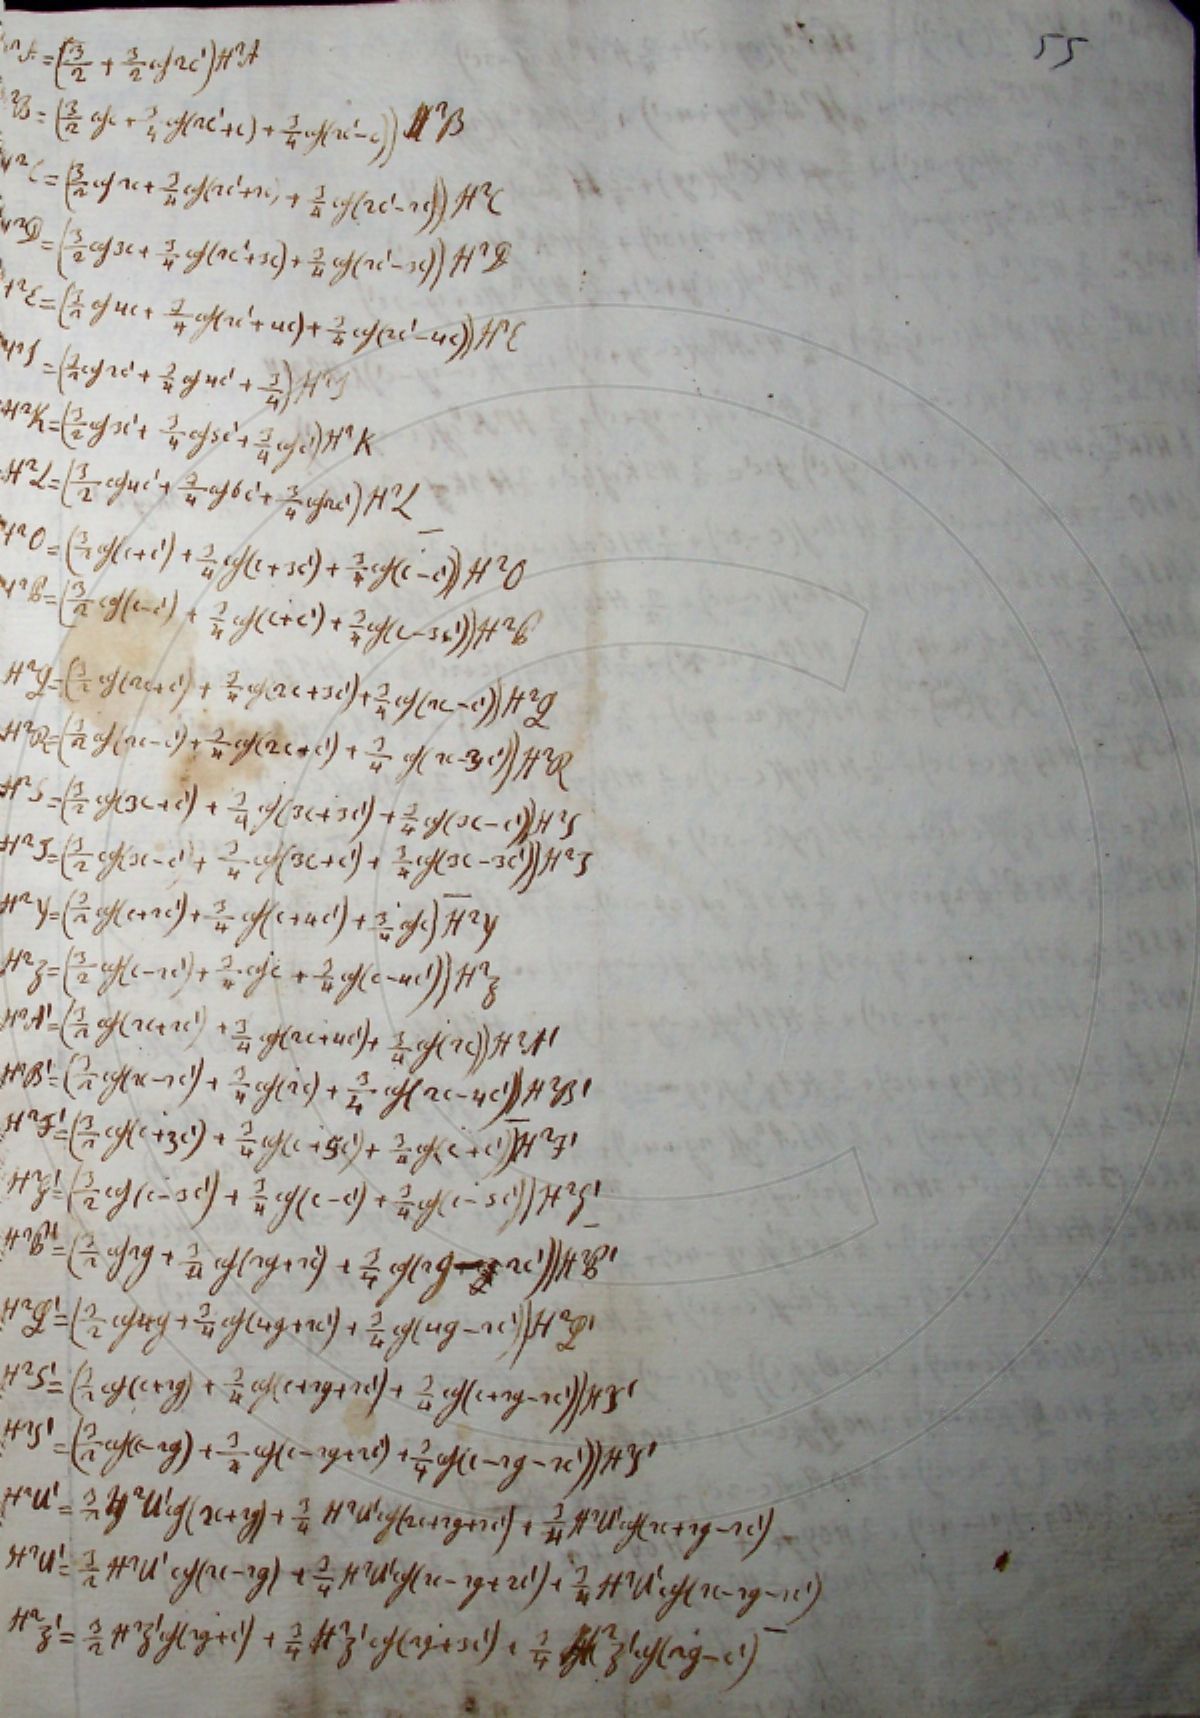 55
= (3/2 + 3/2 cos 2c') H²A
²B = (3/2 cos c + 3/4 cos(2c'+c) + 3/4 cos(2c'-c)) H²B
= (3/2 cos 2c + 3/4 cos(2c'+2c) + 3/4 cos(2c'-2c)) H²C
²D = (3/2 cos 3c + 3/4 cos(2c'+3c) + 3/4 cos(2c'-3c)) H²D
²E = (3/2 cos 4c + 3/4 cos(2c'+4c) + 3/4 cos(2c'-4c)) H²E
= (3/2 cos 2c' + 3/4 cos 4c' + 3/4) H²I
H²K = (3/2 cos 3c' + 3/4 cos 5c' + 3/4 cos c') H²K
H²L = (3/2 cos 4c' + 3/4 cos 6c' + 3/4 cos 2c') H²L
²O = (3/2 cos(c+c') + 3/4 cos(c+3c') + 3/4 cos(c-c')) H²O
²P = (3/2 cos(c-c') + 3/4 cos(c+c') + 3/4 cos(c-3c')) H²P
H²Q = (3/2 cos(2c+c') + 3/4 cos(2c+3c') + 3/4 cos(2c-c')) H²Q
H²R = (3/2 cos(2c-c') + 3/4 cos(2c+c') + 3/4 cos(2c-3c')) H²R
H²S = (3/2 cos(3c+c') + 3/4 cos(3c+3c') + 3/4 cos(3c-c')) H²S
H²T = (3/2 cos(3c-c') + 3/4 cos(3c+c') + 3/4 cos(3c-3c')) H²T
H²Y = (3/2 cos(c+2c') + 3/4 cos(c+4c') + 3/4 cos c) H²Y
H²Z = (3/2 cos(c-2c') + 3/4 cos c + 3/4 cos(c-4c')) H²Z
H²A' = (3/2 cos(2c+2c') + 3/4 cos(2c+4c') + 3/4 cos(2c)) H²A'
H²B' = (3/2 cos(2c-2c') + 3/4 cos(2c) + 3/4 cos(2c-4c')) H²B'
H²F' = (3/2 cos(c+3c') + 3/4 cos(c+5c') + 3/4 cos(c+c')) H²F'
H²G' = (3/2 cos(c-3c') + 3/4 cos(c-c') + 3/4 cos(c-5c')) H²G'
H²P' = (3/2 cos 2g + 3/4 cos(2g+2c') + 3/4 cos(2g-2c')) H²P'
H²Q' = (3/2 cos 4g + 3/4 cos(4g+2c') + 3/4 cos(4g-2c')) H²Q'
H²S' = (3/2 cos(c+2g) + 3/4 cos(c+2g+2c') + 3/4 cos(c+2g-2c')) H²S'
H²T' = (3/2 cos(c-2g) + 3/4 cos(c-2g+2c') + 3/4 cos(c-2g-2c')) H²T'
H²U' = 3/2 H²U' cos(2c+2g) + 3/4 H²U' cos(2c+2g+2c') + 3/4 H²U' cos(2c+2g-2c')
H²U' = 3/2 H²U' cos(2c-2g) + 3/4 H²U' cos(2c-2g+2c') + 3/4 H²U' cos(2c-2g-2c')
H²Z' = 3/2 H²Z' cos(2g+c') + 3/4 H²Z' cos(2g+3c') + 3/4 H²Z' cos(2g-c')